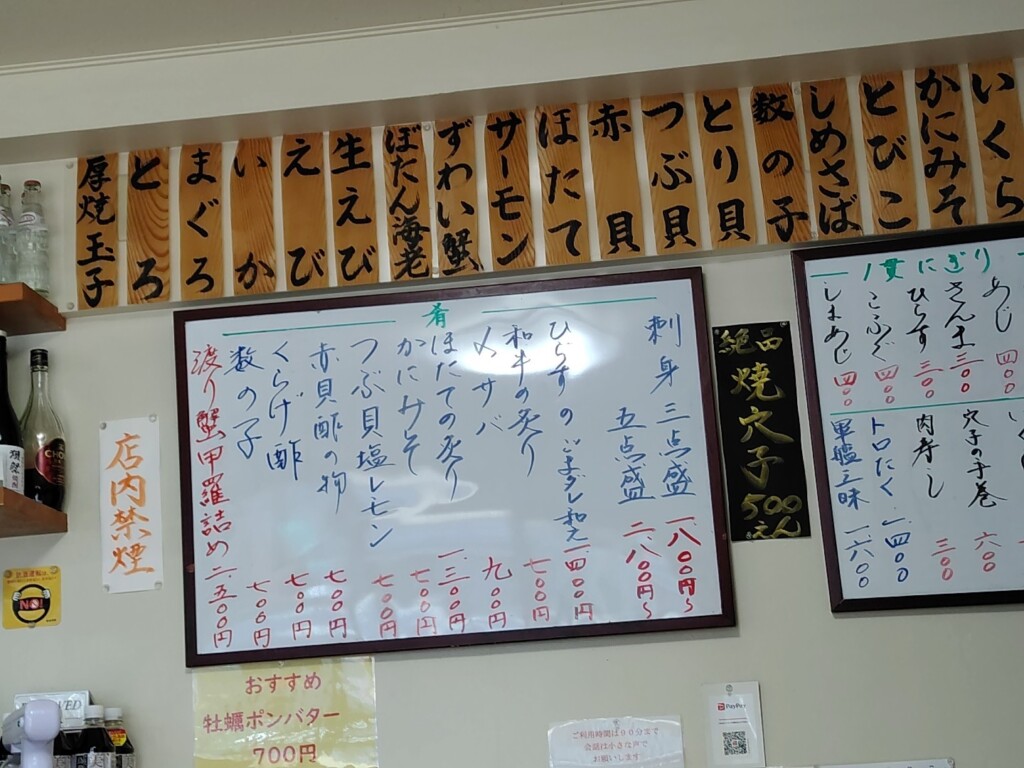 いくら
かにみそ
とびこ
しめさば
数の子
とり貝
つぶ貝
赤貝
ほたて
サーモン
ずわい蟹
ぼたん海老
生えび
えび
いか
まぐろ
とろ
厚焼玉子
1貫にぎり
あじ 四〇〇
さんま 三〇〇
ひらす 三〇〇
こふぐ 四〇〇
しまあじ 四〇〇
穴子の手巻 六〇〇
肉寿し 三〇〇
トロたく 一、四〇〇
軍艦三昧 一、六〇〇
絶品
焼穴子
500えん
肴
刺身 三点盛 一、八〇〇円〜
五点盛 二、八〇〇円〜
ひらすのごまダレ和え 一、四〇〇円
和牛の炙り 七〇〇円
〆サバ 九〇〇円
ほたての炙り 一、三〇〇円
かにみそ 七〇〇円
つぶ貝塩レモン 七〇〇円
赤貝酢の物 七〇〇円
くらげ酢 七〇〇円
数の子 七〇〇円
渡り蟹甲羅詰め 二、五〇〇円
店内禁煙
NO!
おすすめ
牡蠣ポンバター
700円
ご利用時間は90分まで
会話は小さな声で
お願いします
PayPay